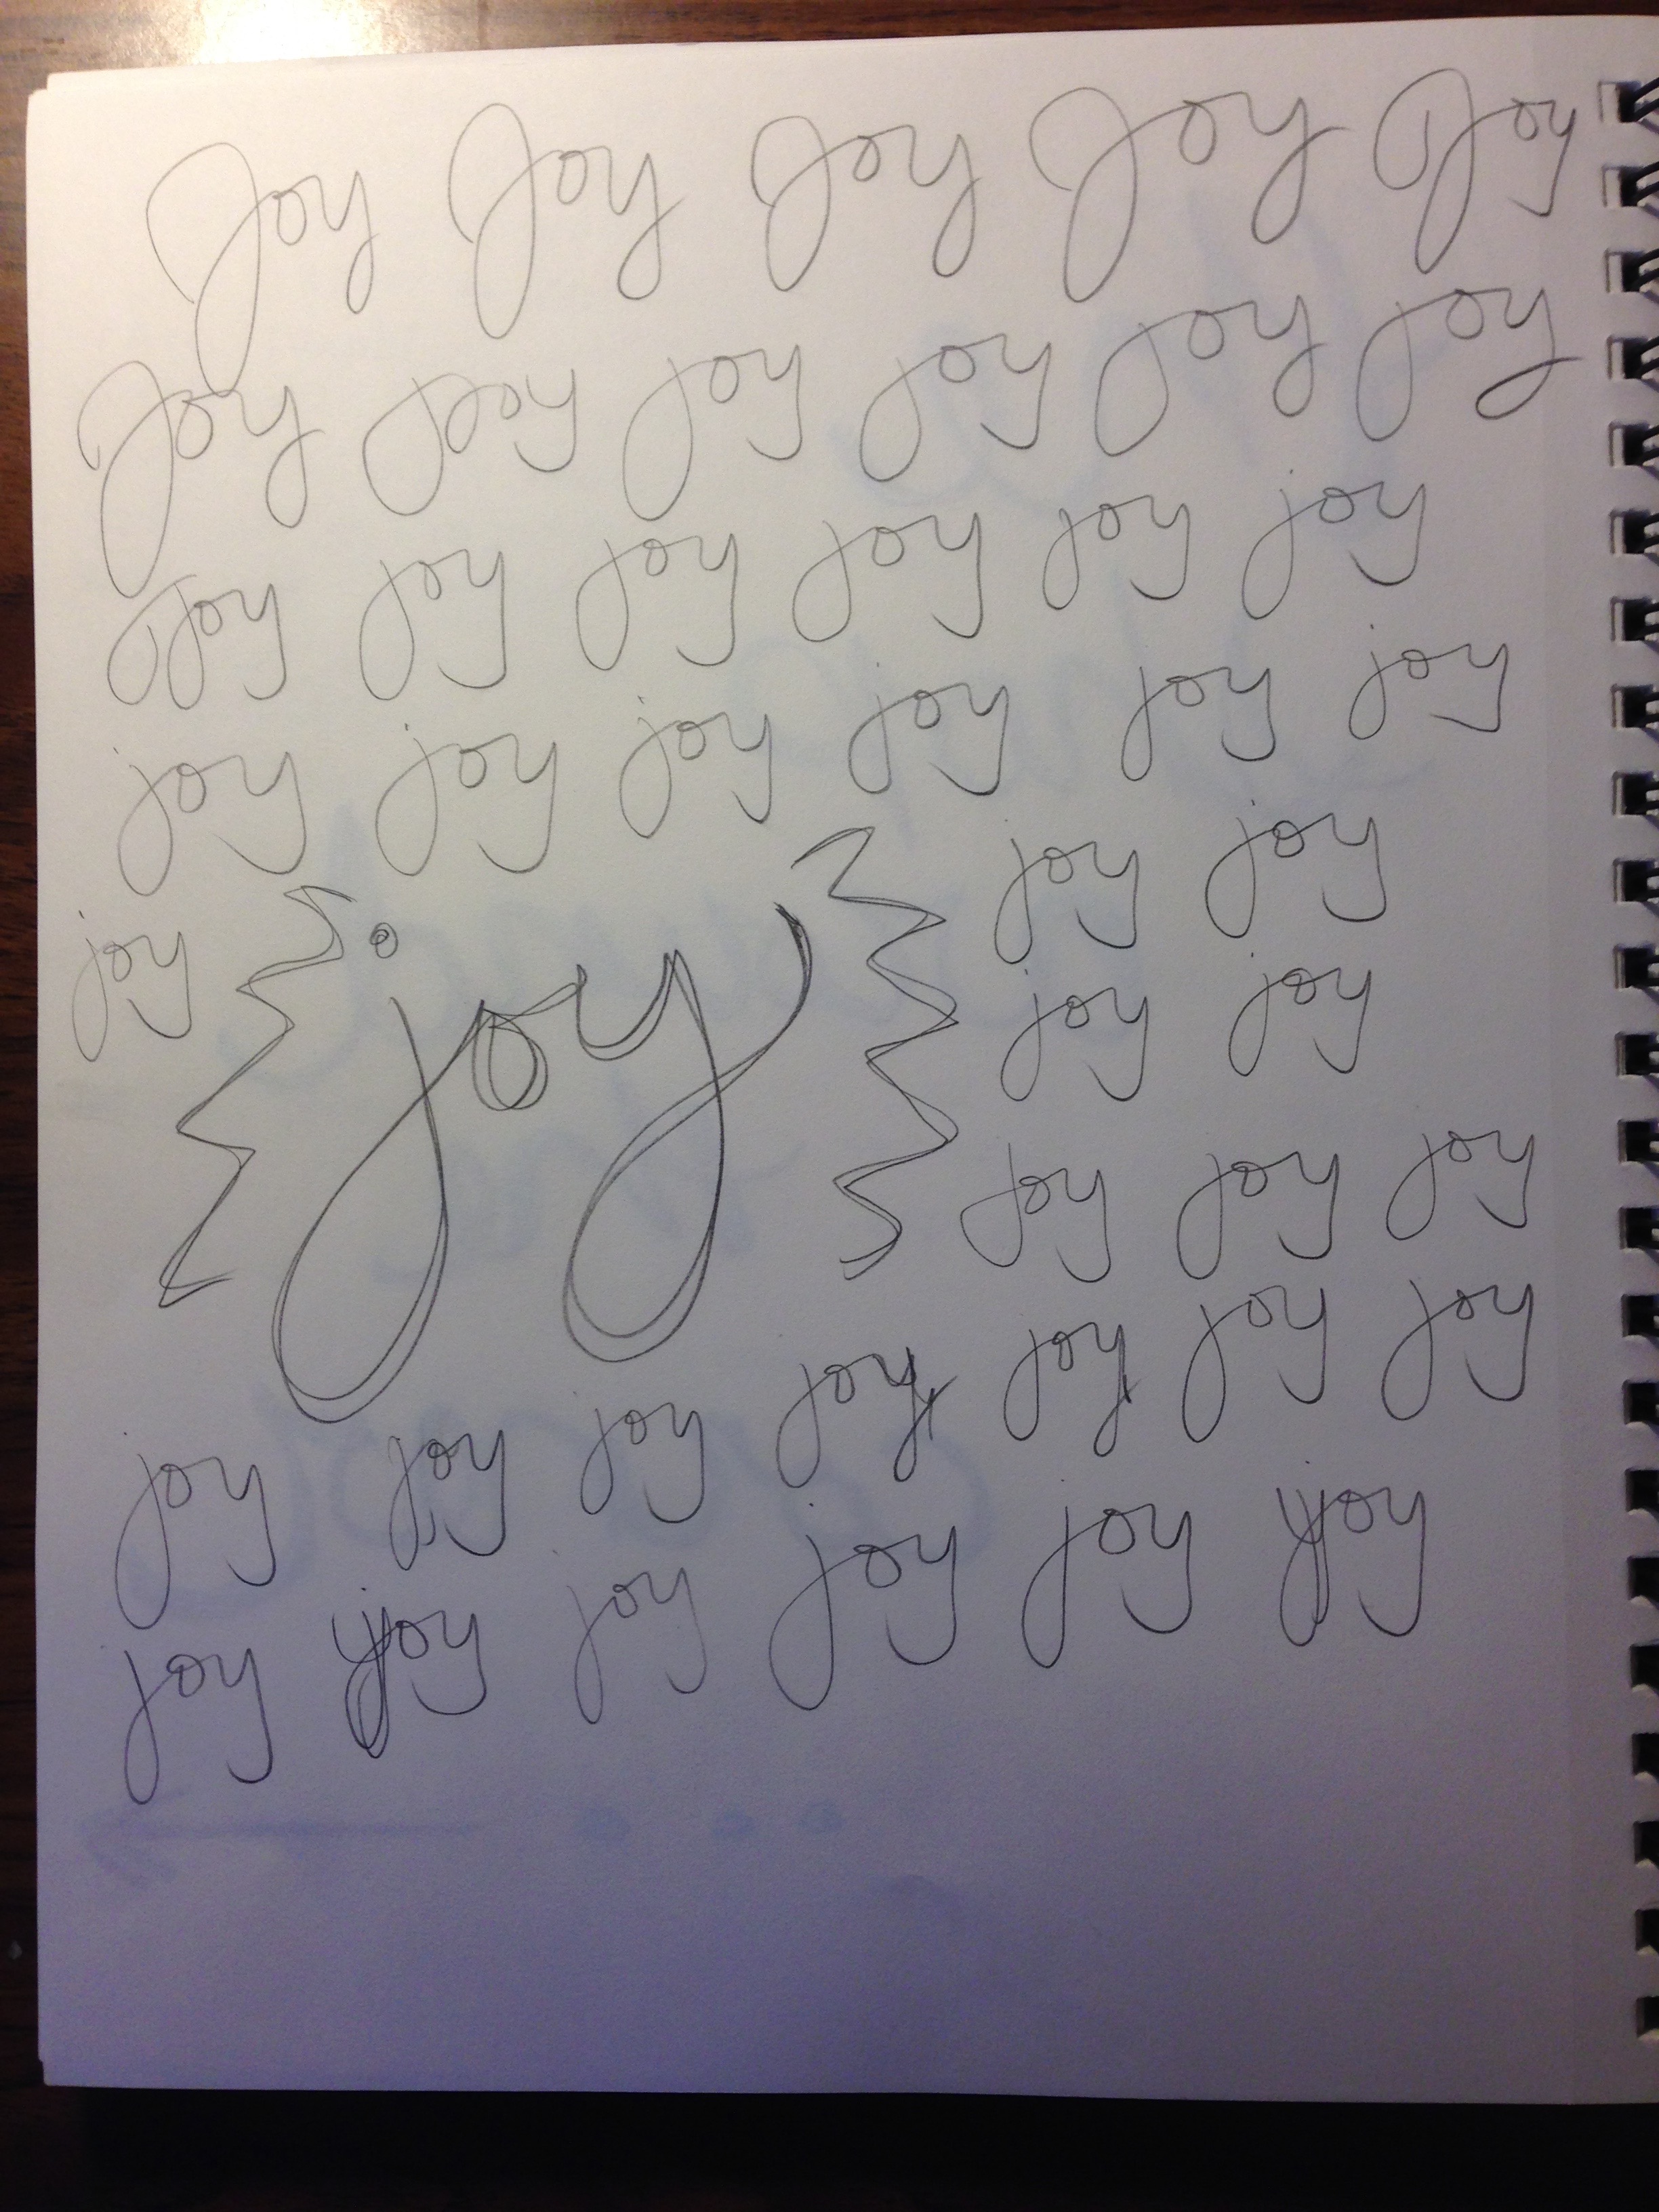 Joy Joy Joy Joy Joy
Joy joy joy joy joy joy
joy joy joy joy joy joy
joy joy joy joy joy joy
joy joy
joy joy
joy joy
joy joy joy
joy joy joy joy joy joy joy
joy joy joy joy joy joy